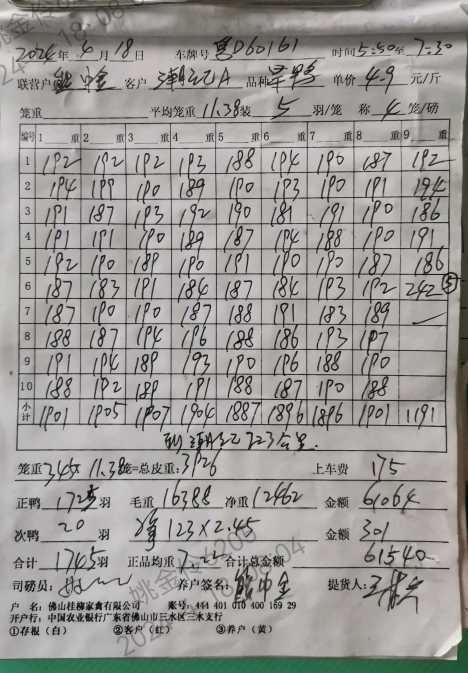 2024年4月18日 车牌号 粤D60161 时间5:50至7:30
联营户 熊中金 客户 品种 单价4.9元/斤
笼重 平均笼重11.38装5羽/笼 称4笼/磅
编号 1 重 2 重 3 重 4 重 5 重 6 重 7 重 8 重 9 重
1 192 192 192 193 188 194 190 187 192
2 194 199 190 189 190 193 190 191 194
3 191 187 193 192 190 181 191 190 186
4 191 191 190 189 187 194 188 190 191
5 192 190 189 190 191 190 190 187 186
6 187 183 191 184 187 184 193 192 242 ⑤
7 190 190 190 187 188 191 183 189
8 188 187 194 196 188 186 193 187
9 191 194 189 193 190 196 188 190
10 188 192 189 191 188 187 190 188
小计 1901 1905 1907 1904 1887 1896 1896 1901 1191
笼重345×11.38笼=总皮重:3926 上车费 175
正鸭 1725羽 毛重16388 净重12462 金额 61064
次鸭 20羽 123×2.45 金额 301
合计 1745羽 正品均重7.22 合计总金额 61540
司磅员: 养户签名:熊中金 提货人:
户 名:佛山桂柳家禽有限公司 账号:444 401 010 400 169 29
开户行:中国农业银行广东省佛山市三水区三水支行
①存根(白) ②客户(红) ③养户(黄)